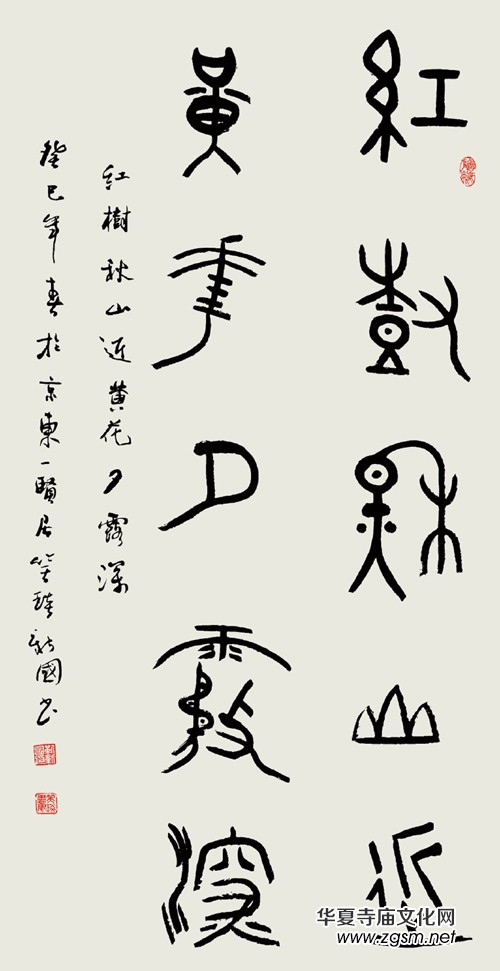 紅樹秋山近
黃花夕露深
红樹秋山近黄花夕露深
癸巳年春於京東一賢居筆陣新國书
华夏寺庙文化网
www.zgsm.net